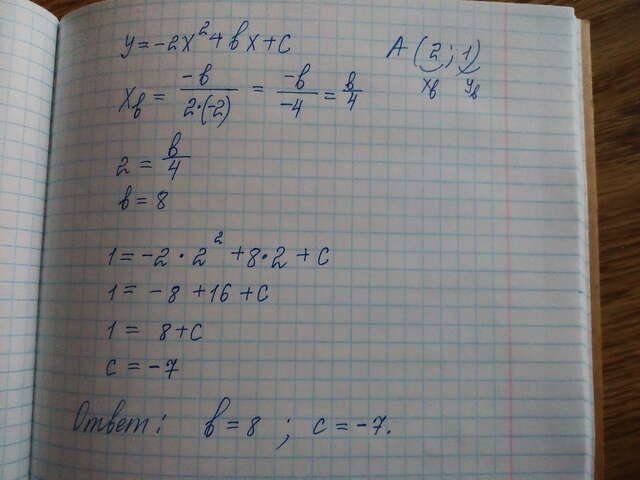 y = -2x² + bx + c    A (2; 1)
xв yв
xв = -b/(2·(-2)) = -b/-4 = b/4
2 = b/4
b = 8
1 = -2 · 2² + 8 · 2 + c
1 = -8 + 16 + c
1 = 8 + c
c = -7
Ответ: b = 8 ; c = -7.